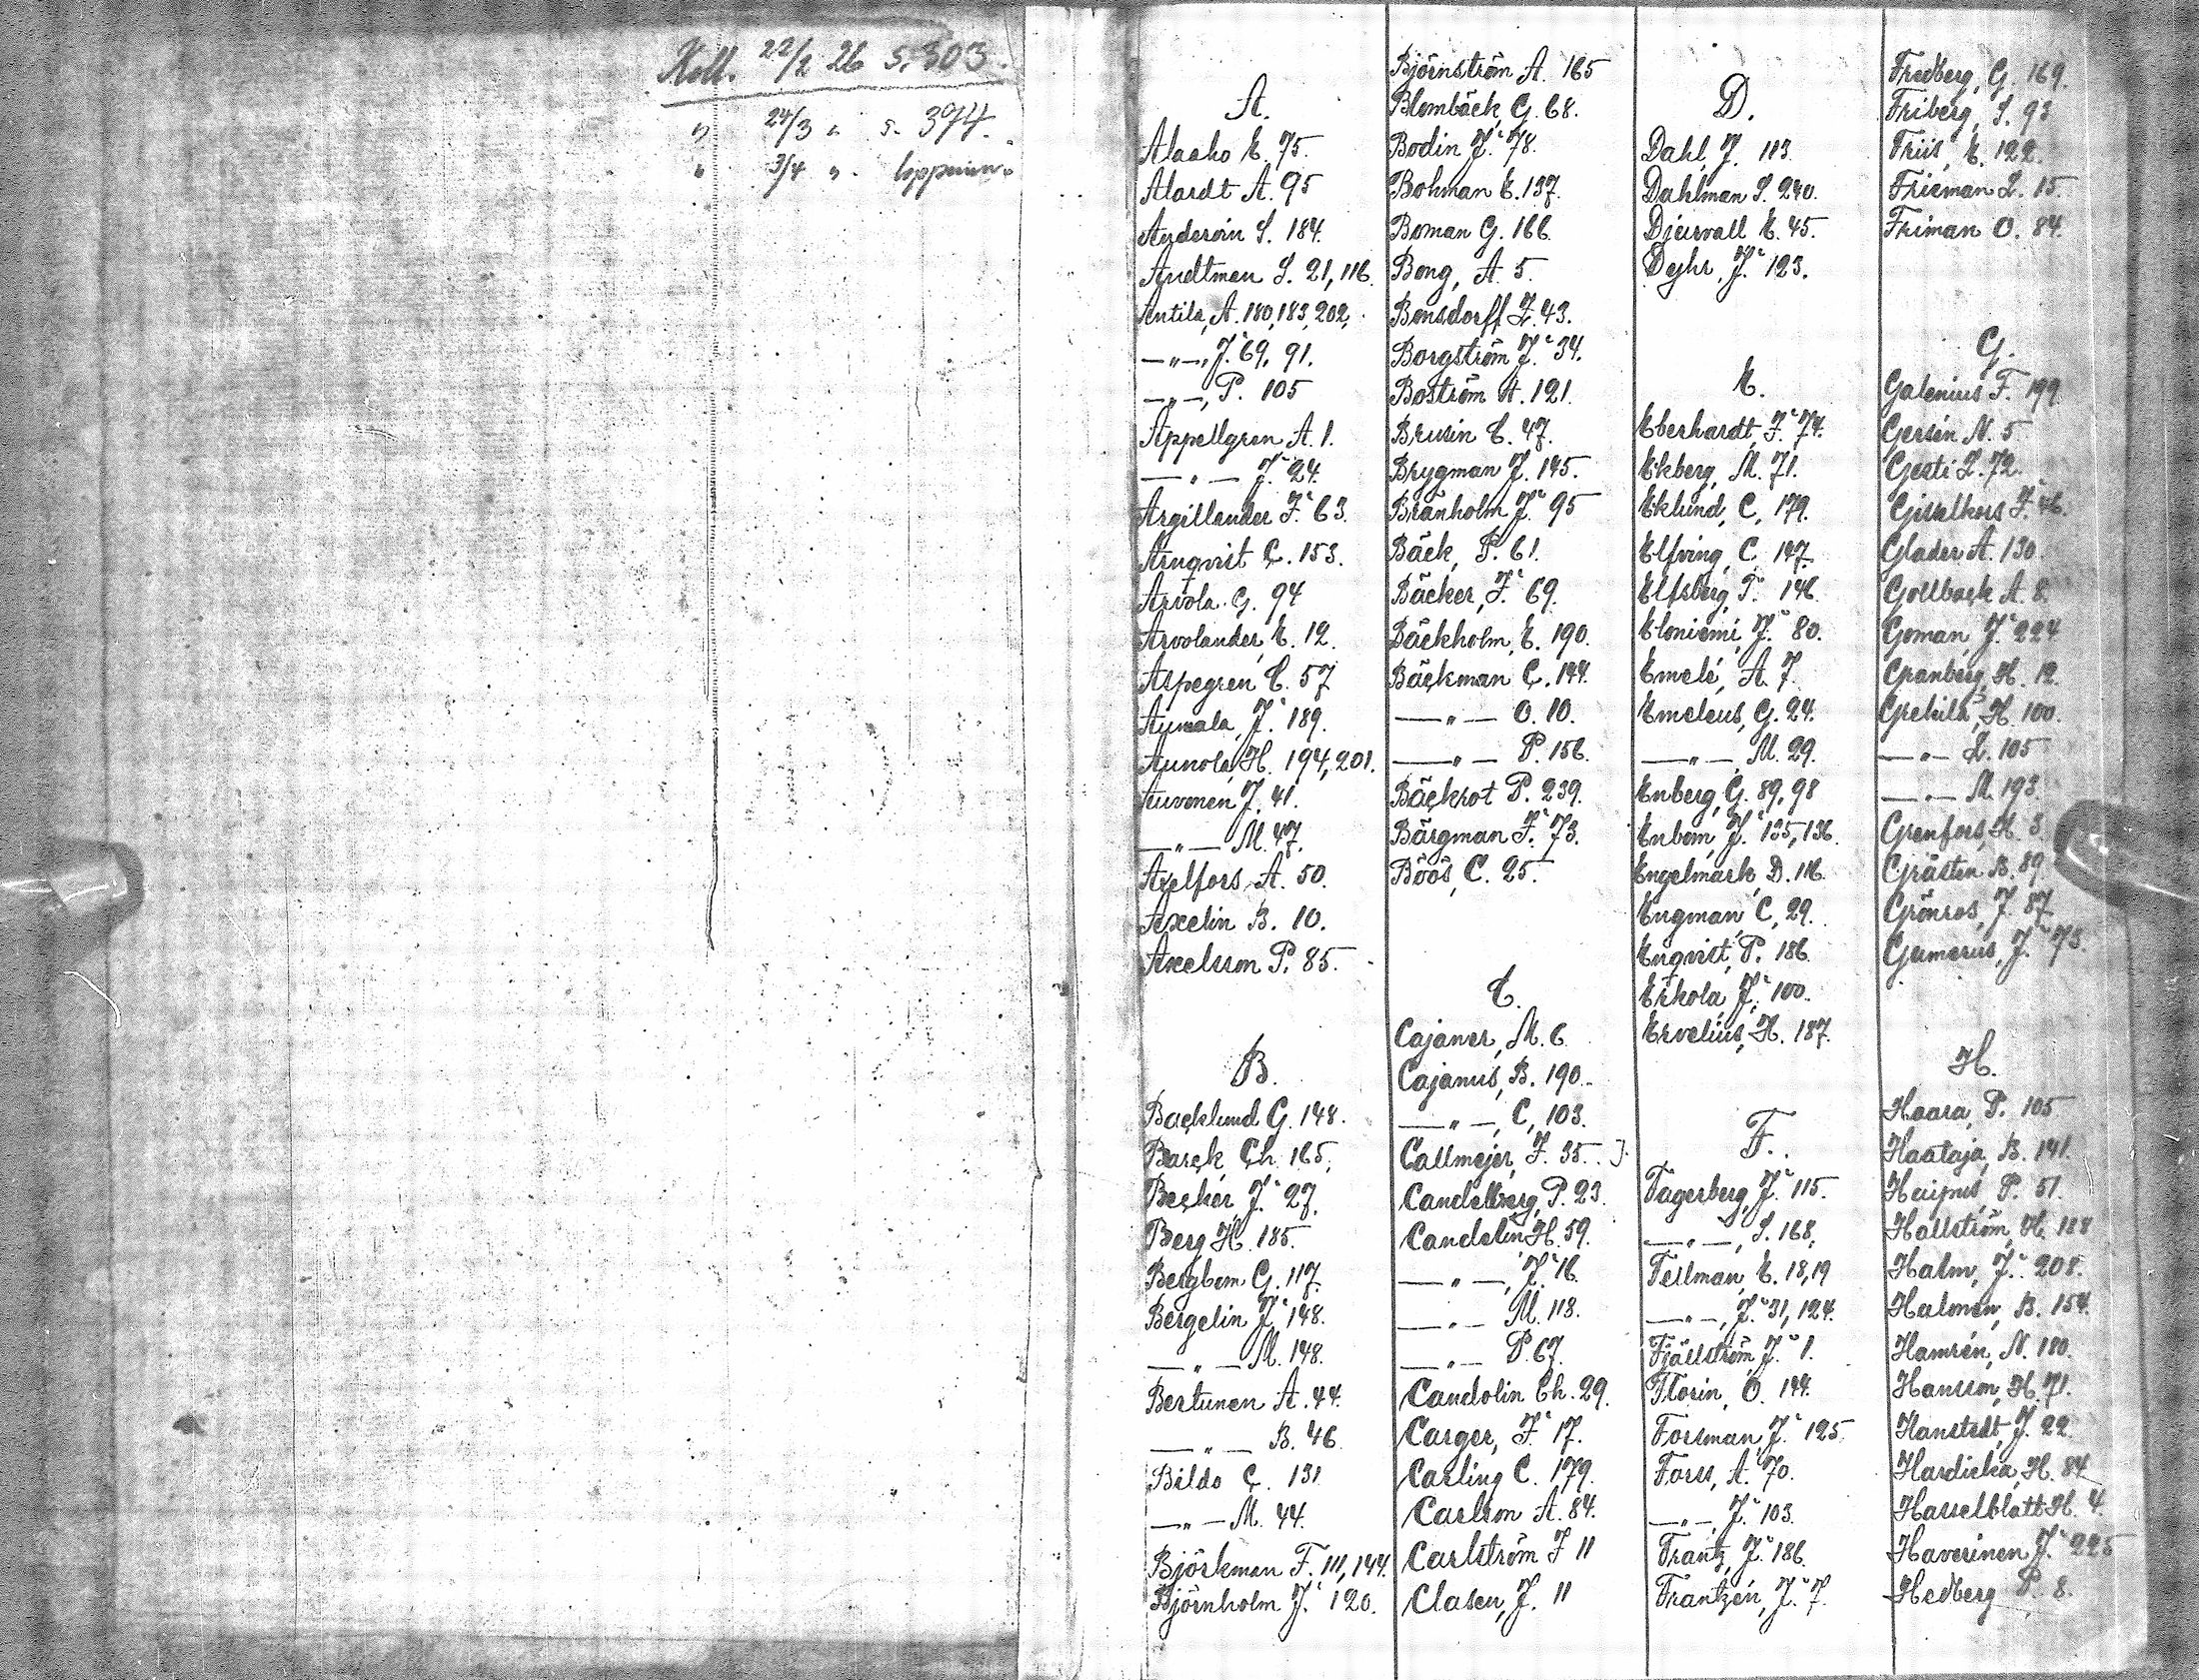 Koll. 22/2 26 s. 303.
" 24/3 " s. 374.
" 3/4 " loppuun.
A.
Alaaho E. 75.
Alardt A. 95
Anderoin S. 184.
Andtman S. 21, 116.
Antila, A. 180, 183, 202,
—"—, J. 69, 91.
—"—, P. 105
Appellgren A. 1.
—"— J. 24.
Argillander F. 63.
Arnqvist C. 153.
Arvola G. 94
Arvolander, E. 12.
Aspegren C. 57
Aumala, J. 189.
Aunola, H. 194, 201.
Auvonen J. 41.
—"— M. 47.
Axelfors, A. 50.
Axelin B. 10.
Axelsson P. 85.
B.
Backlund G. 148.
Barck Ch. 165,
Becker J. 27.
Berg H. 185.
Bergbom G. 117.
Bergelin J. 148.
—"— M. 148.
Bertunen A. 44.
—"— B. 46
Bildo C. 131
—"— M. 44.
Björkman F. 111, 144.
Björnholm J. 120.
Björnström A. 165
Blombäck, G. 68.
Bodin J. 78.
Bohman E. 137.
Boman G. 166.
Bong, A 5.
Bonsdorff F. 43.
Borgström J. 34.
Boström A. 121.
Brusin C. 47.
Brygman J. 145.
Brånholm J. 95
Bäck, P. 61.
Bäcker, F. 69.
Bäckholm, E. 190.
Bäckman C. 144.
—"— O. 10.
—"— P. 156.
Bäckrot P. 239.
Bärgman F. 73.
Böös, C. 25.
C.
Cajaner, M. 6
Cajanus, B. 190.
—"—, C, 103.
Callmejer, F. 35.
Candelberg, P. 23.
Candelin H. 59.
—"—, J. 16.
—"— M. 113.
—"— P. 67.
Candolin Ch. 29.
Carger, F. 17.
Carling C. 179.
Carlson A. 84.
Carlström F 11
Clasen, J. 11
D.
Dahl, J. 113.
Dahlman S. 240.
Djeirvall E. 45.
Dyhr, J. 123.
E.
Eberhardt, F. 74.
Ekberg, M. 71.
Eklund, C, 179.
Elfving, C, 147.
Elfsberg, P. 146
Eloniemi, J. 80.
Emelé, A. 7.
Emeleus, G. 24.
—"—, M. 29.
Enberg, G. 89, 98
Enbom, J. 135, 136.
Engelmark, D. 116.
Engman, C, 29.
Enqvist, P. 186.
Erkola, J. 100.
Ervelius, H. 187.
F.
Fagerberg, J. 115.
—"—, S. 168,
Fellman, E. 18, 19
—"—, J. 31, 124.
Fjällström, J. 1.
Florin, O. 144.
Forsman, J. 125.
Forss, A. 70.
—"—, J. 103.
Frantz, J. 186.
Frantzén, J. 7.
Fredberg, G. 169.
Friberg, S. 93
Friis, E. 122.
Frieman L. 15.
Friman O. 84.
G.
Galenius F. 199
Gersén N. 5
Gesti L. 72.
Giselkors F. 46.
Glader A. 130.
Gollback A. 8.
Goman, J. 224
Granberg, H. 12.
Grekilä, H. 100.
—"— L. 105
—"— M. 193.
Grenfors, H. 3
Grästen B. 89
Grönros, J. 87
Gumerus, J. 73.
H.
Haara, P. 105
Haataja, B. 141.
Haipus, P. 51.
Hallström, H. 188
Halm, J. 208.
Halonen, B. 154.
Hamrén, N. 180.
Hansson, H. 71.
Hanstedt, J. 22.
Hardicka, H. 84
Hasselblatt H. 4.
Haverinen J. 225
Hedberg P. 8.